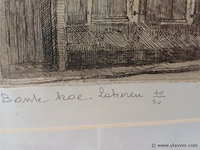 Bonte koe Lokeren 40/50
© www.vlavem.com